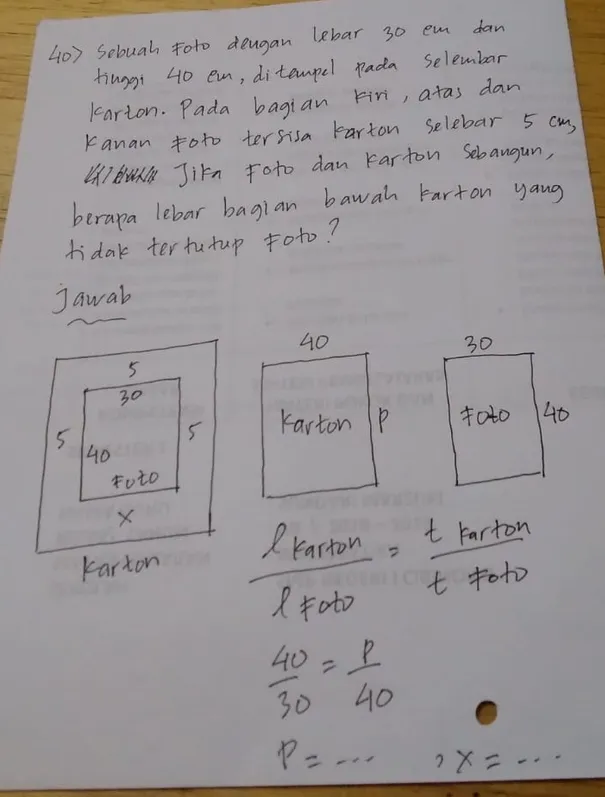 40) Sebuah Foto dengan lebar 30 cm dan
tinggi 40 cm, ditempel pada selembar
karton. Pada bagian kiri, atas dan
kanan Foto tersisa karton selebar 5 cm,
Jika Foto dan karton sebangun,
berapa lebar bagian bawah karton yang
tidak tertutup Foto?
jawab
5
30
5
5
40
Foto
x
karton
40
karton
p
30
Foto
40
l karton = t karton
l Foto t Foto
40 = p
30 40
p = ... , x = ...